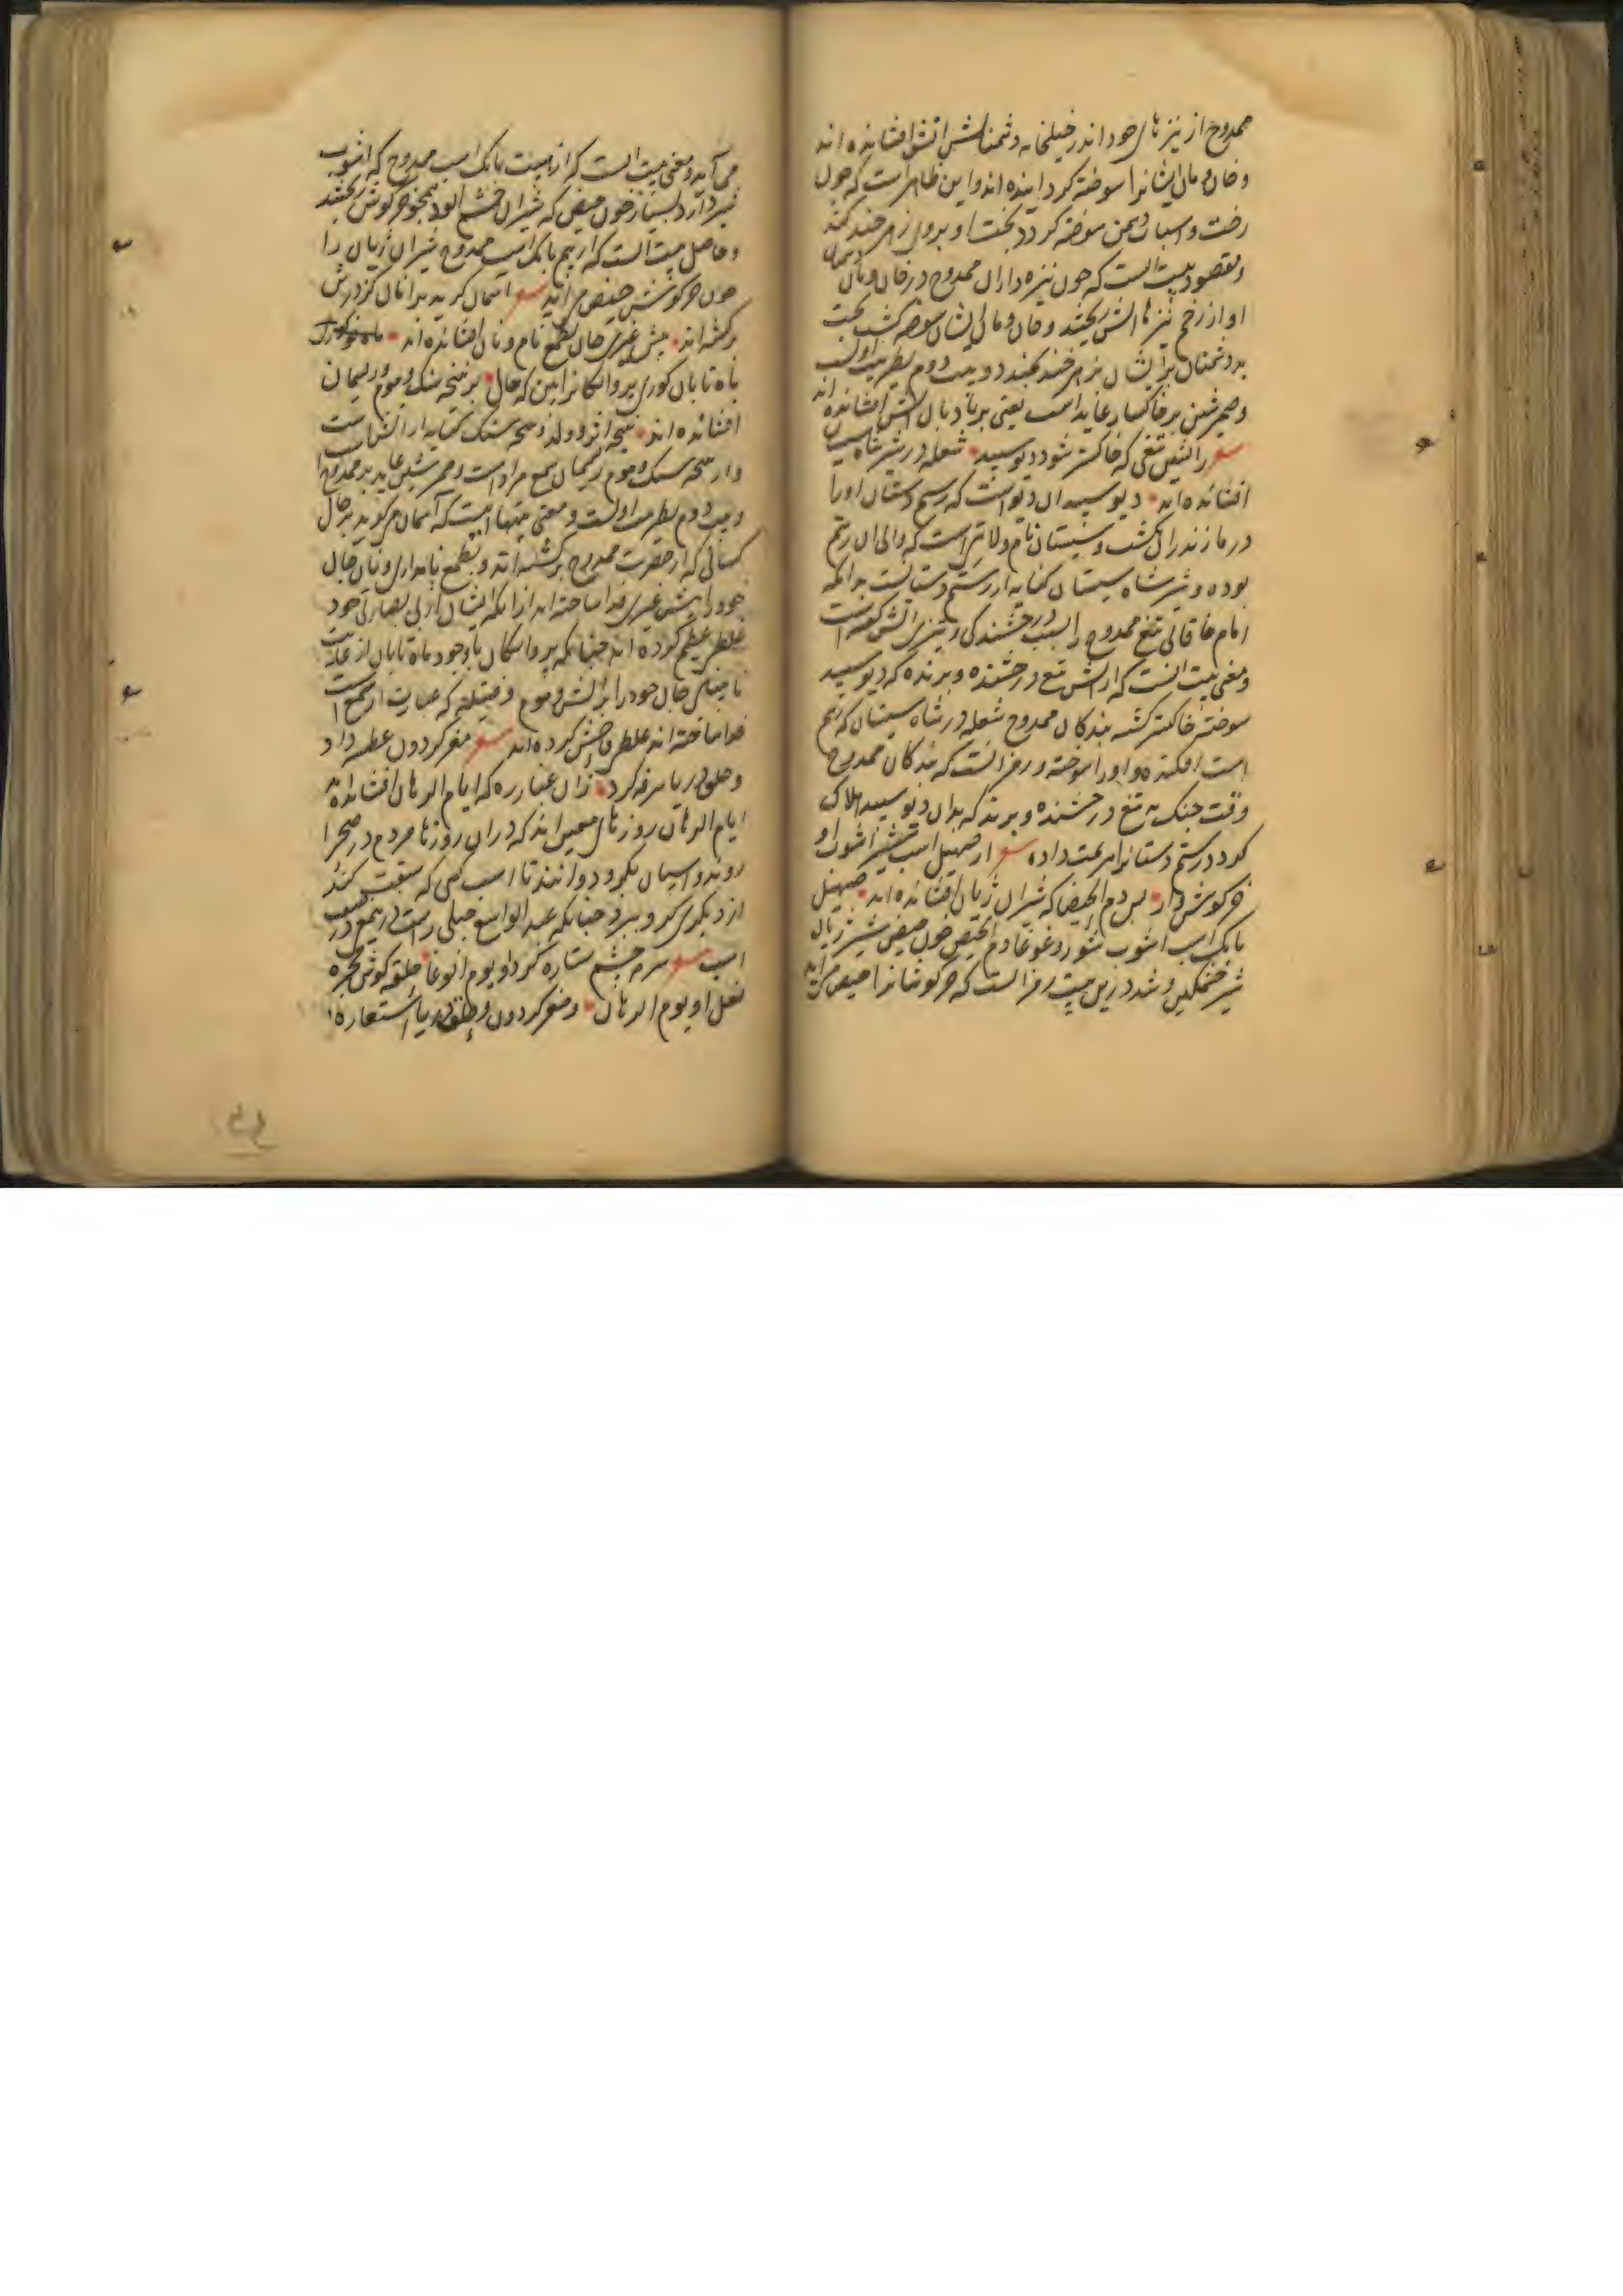 ممدوح از نیزهای خود اندر خیلخانه دشمنانش اتش افشانده اند
و خان و مان ایشانرا سوخته کردانیده اند و این ظاهر است که چون
رخت و اسباب دشمن سوخته کردد بخت او بروی زهرخند کند
و مقصود بیت انست که چون نیزه داران ممدوح در خان و مان دشمنان
او از زخم نیزها اتش ریختند و خان و مان ایشان سوخته کشت بخت
بد دشمنان بر ایشان زهرخند بخندد و بیت دوم بیت اولست
و ضمیر شین بر خاکسار عاید است یعنی بر باد بان اتش افشانده اند
شعر ز اتش تیغی که خاکستر شود دیو سپید شعله در شیر شاه سیستان
افشانده اند دیو سپید ان دیو است که رستم دستان او را
در مازندران کشت و سیستان نام ولایتی است که والی ان رستم
بوده و شیر شاه سیستان کنایه از رستم دستانست بدانکه
امام خاقانی تیغ ممدوح را بسبب درخشندکی و تیزی اتش کفته است
و معنی بیت انست که از اتش تیغ درخشنده و برنده که دیو سپید
سوخته خاکستر کشته بندکان ممدوح شعله در شاه سیستان که رستم
است افکنده و او را سوخته و رمز انست که بندکان ممدوح
وقت جنک به تیغ درخشنده و برنده که بدان دیو سپید هلاک
کردد رستم دستانرا هزیمت داده شعر از صهیل اسب شیر اشوب او
خرکوش وار بس دم الحیض که شیران ژیان افشانده اند صهیل
بانک اسب اشوب شور و غوغا دم الحیض خون حیض شیر ژیان
شیر خشمکین و شد درین بیت رمز انست که خرکوشانرا حیض می اید
می آید و معنی بیت انست که از هیبت بانک اسب ممدوح که اشوب
شیر دارد بسیار خون حیض که شیران خشم الود همچو خرکوش ریختند
و حاصل بیت انست که از بیم بانک اسب ممدوح شیران ژیان را
چون خرکوش حیض می اید شعر اسمان کرید بر انان کز درش
برکشته اند پیش غیری جان بطمع نام و نان افشانده اند
ماه تابان کوری پروانکانرا بین که جان بر سنک و موم و ریسمان
افشانده اند
کنایه از اتش است
و از سنک و موم و ریسمان شمع مراد است و ضمیر شین عاید بر ممدوح
و بیت دوم بیت اولست و معنی بیتها اینست که آسمان می کرید بر حال
کسانی که از حضرت ممدوح برکشته اند و بطمع نامداری و نان جان
خود را پیش غیری فدا ساخته اند از انکه ایشان از بی بصارتی خود
غلطی عظیم کرده اند چنانکه پروانکان با وجود ماه تابان از غایت
نابینایی جان خود را بر اتش و موم و فتیله که عبارت از شمع است
فدا ساخته اند غلطی فاحش کرده اند شعر مغز کردون عطسه داد
و حلق دریا سرفه کرد زان غبار ره که ایام الرهان افشانده اند
ایام الرهان روزهای معین اند که در ان روزها مردم در صحرا
روند و اسپان بکرو دوانند تا اسب کسی که سبقت کند
از دیکری کرو ببرد چنانکه عبد الواسع جبلی راست در
اسب شعر سرمه چشم ستاره کرد او یوم الوغا حلقه کوش مجره
نعل او یوم الرهان و مغز کردون و حلق دریا استعاره